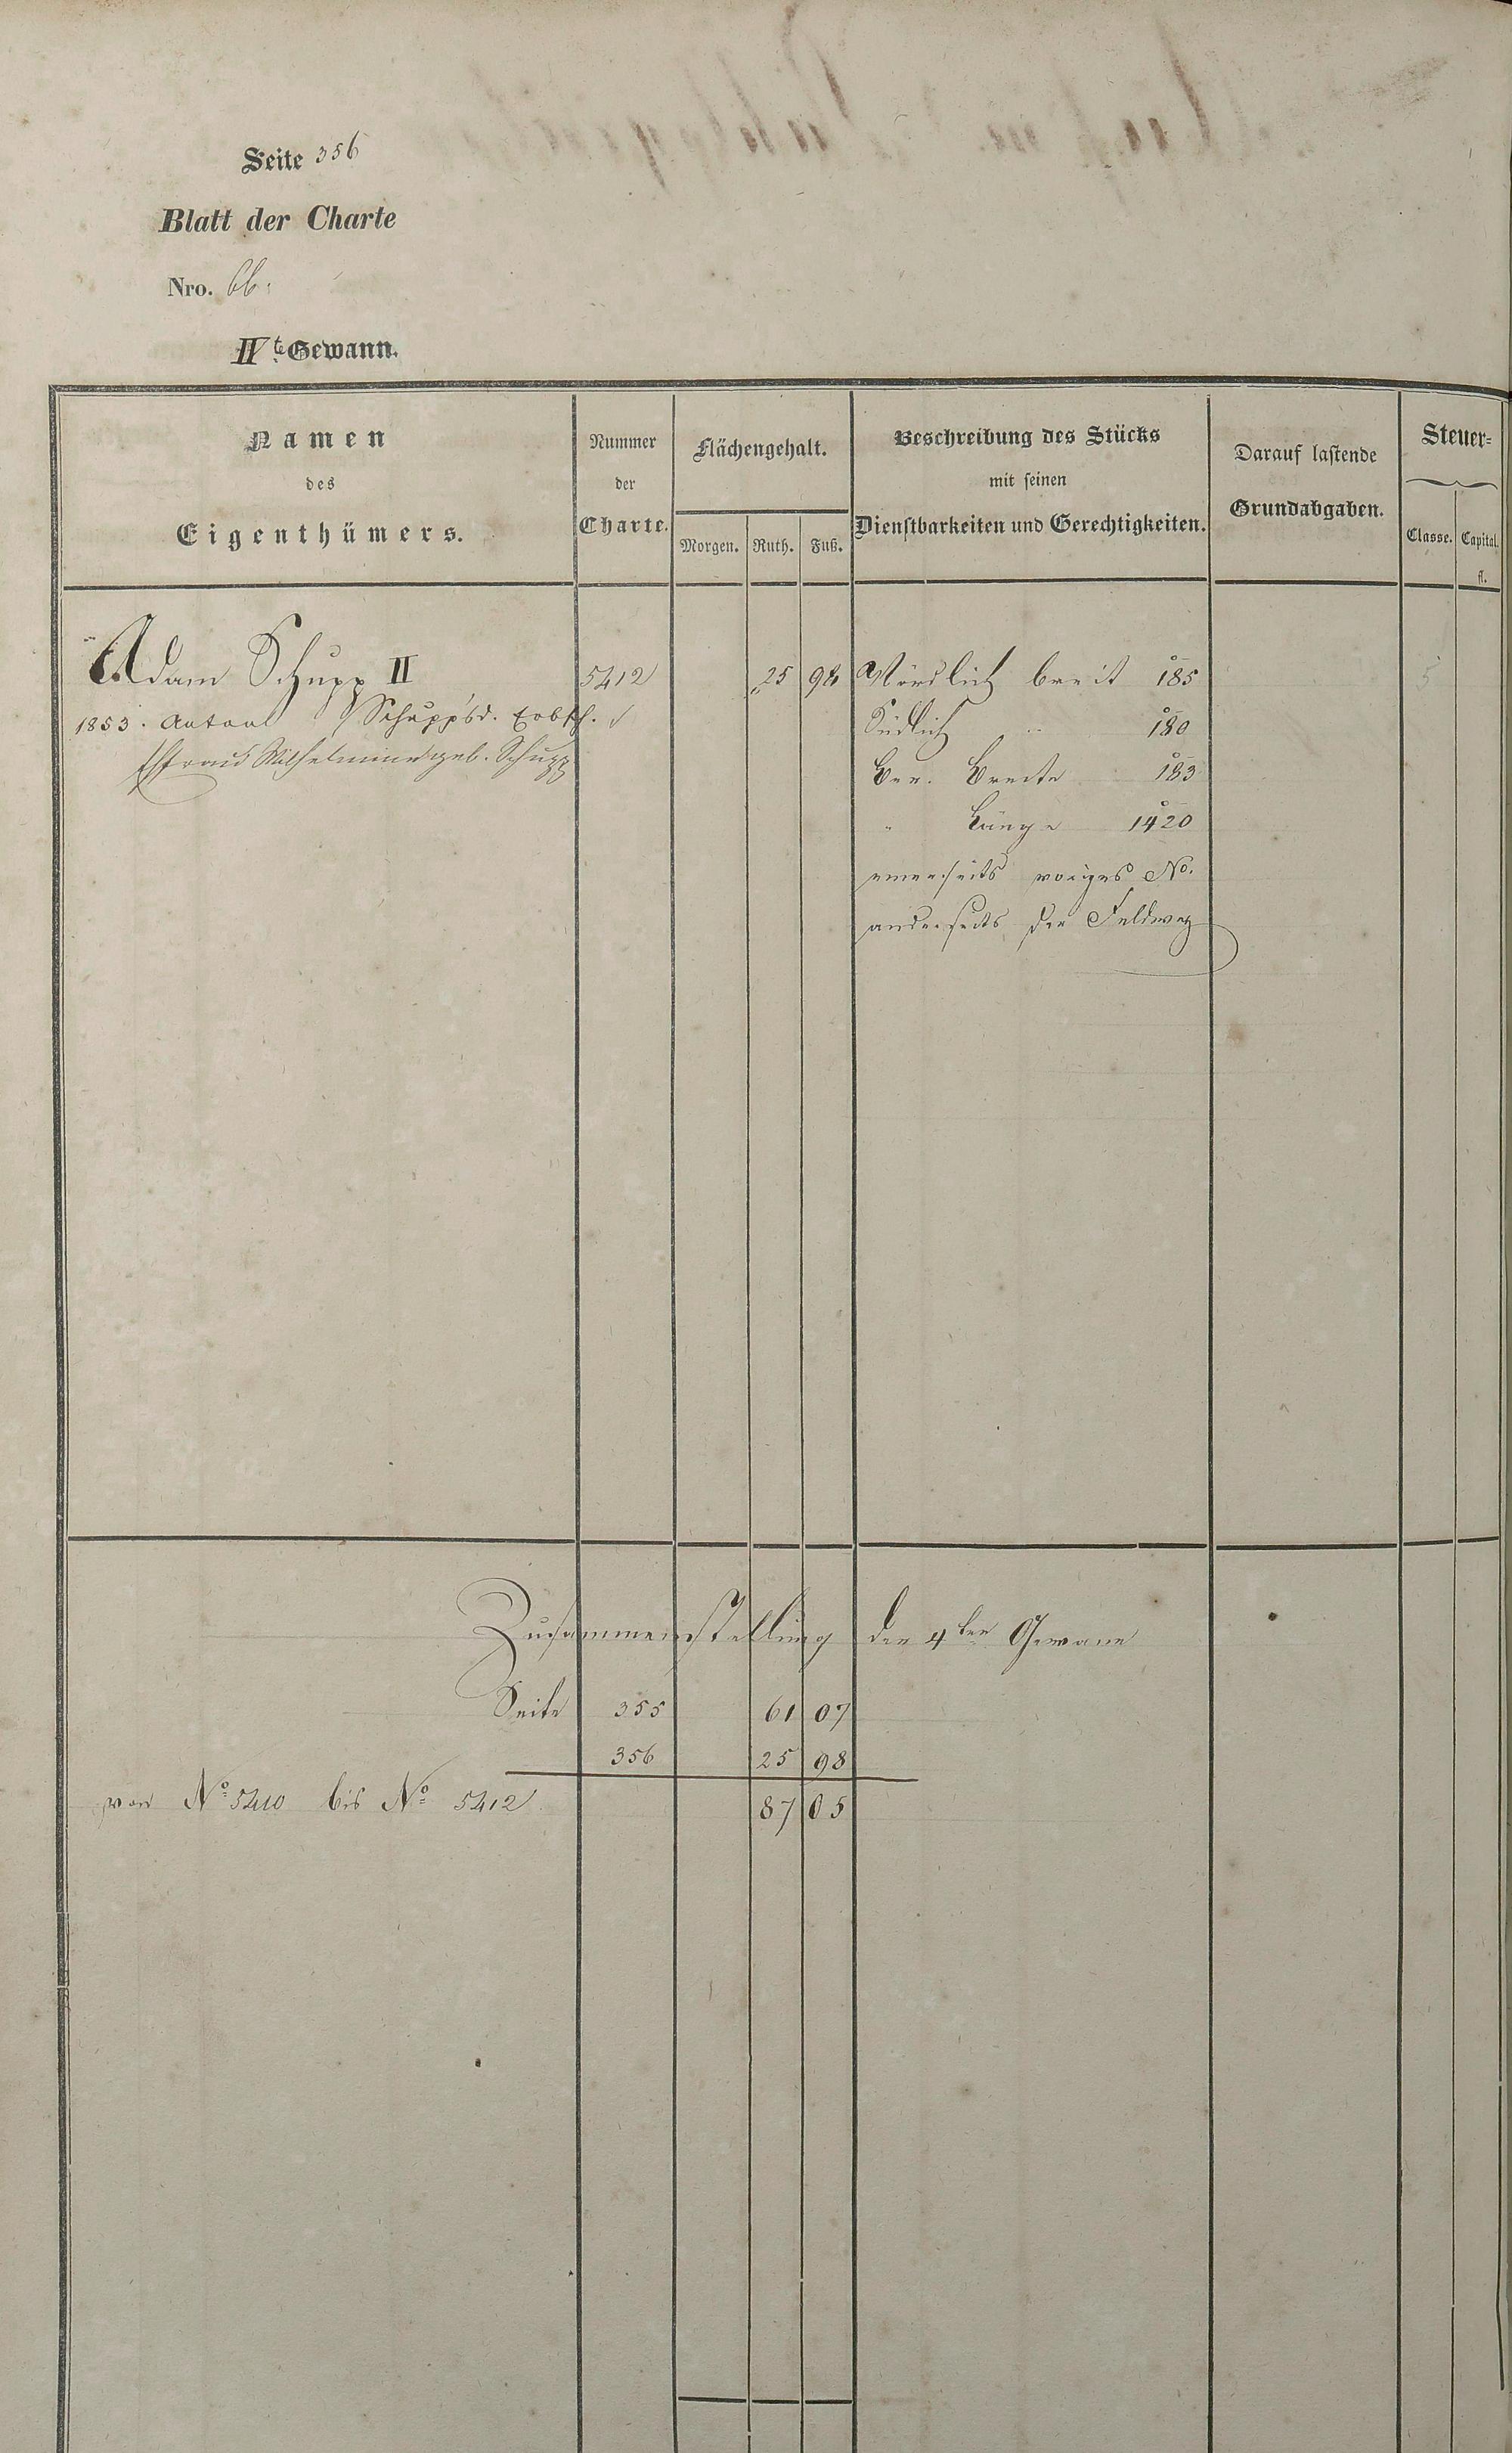 Seite 356
Blatt der Charte
Nro. 66.
IVte Gewann.
Namen
des
Eigenthümers.
Nummer
der
Charte.
Flächengehalt.
Morgen. Ruth. Fuß.
Beschreibung des Stücks
mit seinen
Dienstbarkeiten und Gerechtigkeiten.
Darauf lastende
Grundabgaben.
Steuer-
Classe. Capital.
fl.
Adam Schupp II 5412 25 98 Nördlich breit 185 5
1853. Schupp's Südlich " 180
Wilhelmine geb. Schupp Ber. Breite 183
" Länge 1420
einerseits voriges No.
anderseits der Feldweg
Zusammenstellung der 4ten Gewann
Seite 355 61 07
356 25 98
von No 5410 bis No 5412 87 05